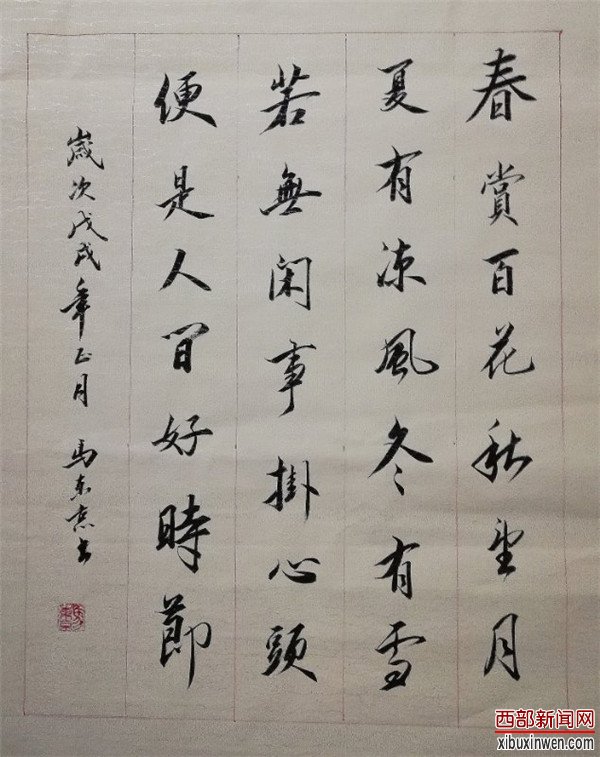 春賞百花秋望月
夏有凉風冬有雪
若無闲事掛心頭
便是人間好時節
歲次戊戌年正月 馬東
西部新闻网
xibuxinwen.com